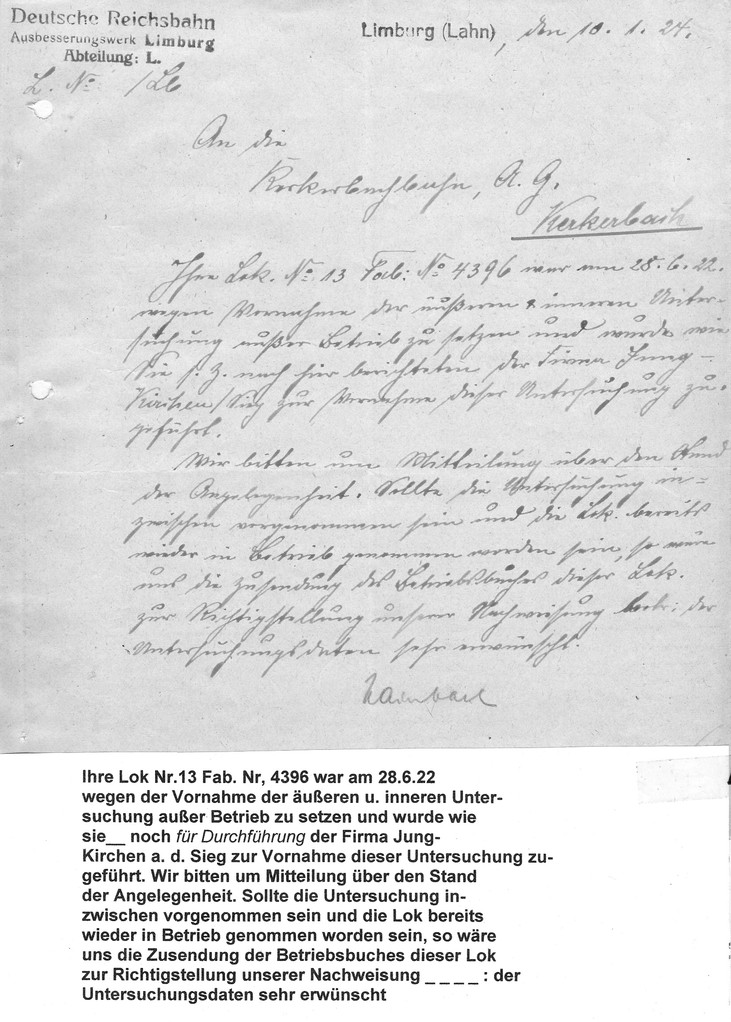 Deutsche Reichsbahn
Ausbesserungswerk Limburg
Abteilung: L.
L. No /Lb
Limburg (Lahn), den 10. 1. 24.
An die
Kerkerbachbahn, A. G.
Kerkerbach
Ihre Lok. No 13 Fab: No 4396 war am 28. 6. 22.
wegen Vornahme der äußeren & inneren Unter-
suchung außer Betrieb zu setzen und wurde wie
Sie s. Z. nach hier berichteten der Firma Jung-
Kirchen/Sieg zur Vornahme dieser Untersuchung zu-
geführt.
Wir bitten um Mitteilung über den Stand
der Angelegenheit. Sollte die Untersuchung in-
zwischen vorgenommen sein und die Lok. bereits
wieder in Betrieb genommen worden sein, so wäre
uns die Zusendung des Betriebsbuches dieser Lok.
zur Richtigstellung unserer Nachweisung betr: der
Untersuchungsdaten sehr erwünscht.
Ihre Lok Nr.13 Fab. Nr, 4396 war am 28.6.22
wegen der Vornahme der äußeren u. inneren Unter-
suchung außer Betrieb zu setzen und wurde wie
sie__ noch für Durchführung der Firma Jung-
Kirchen a. d. Sieg zur Vornahme dieser Untersuchung zu-
geführt. Wir bitten um Mitteilung über den Stand
der Angelegenheit. Sollte die Untersuchung in-
zwischen vorgenommen sein und die Lok bereits
wieder in Betrieb genommen worden sein, so wäre
uns die Zusendung der Betriebsbuches dieser Lok
zur Richtigstellung unserer Nachweisung _ _ _ _ : der
Untersuchungsdaten sehr erwünscht